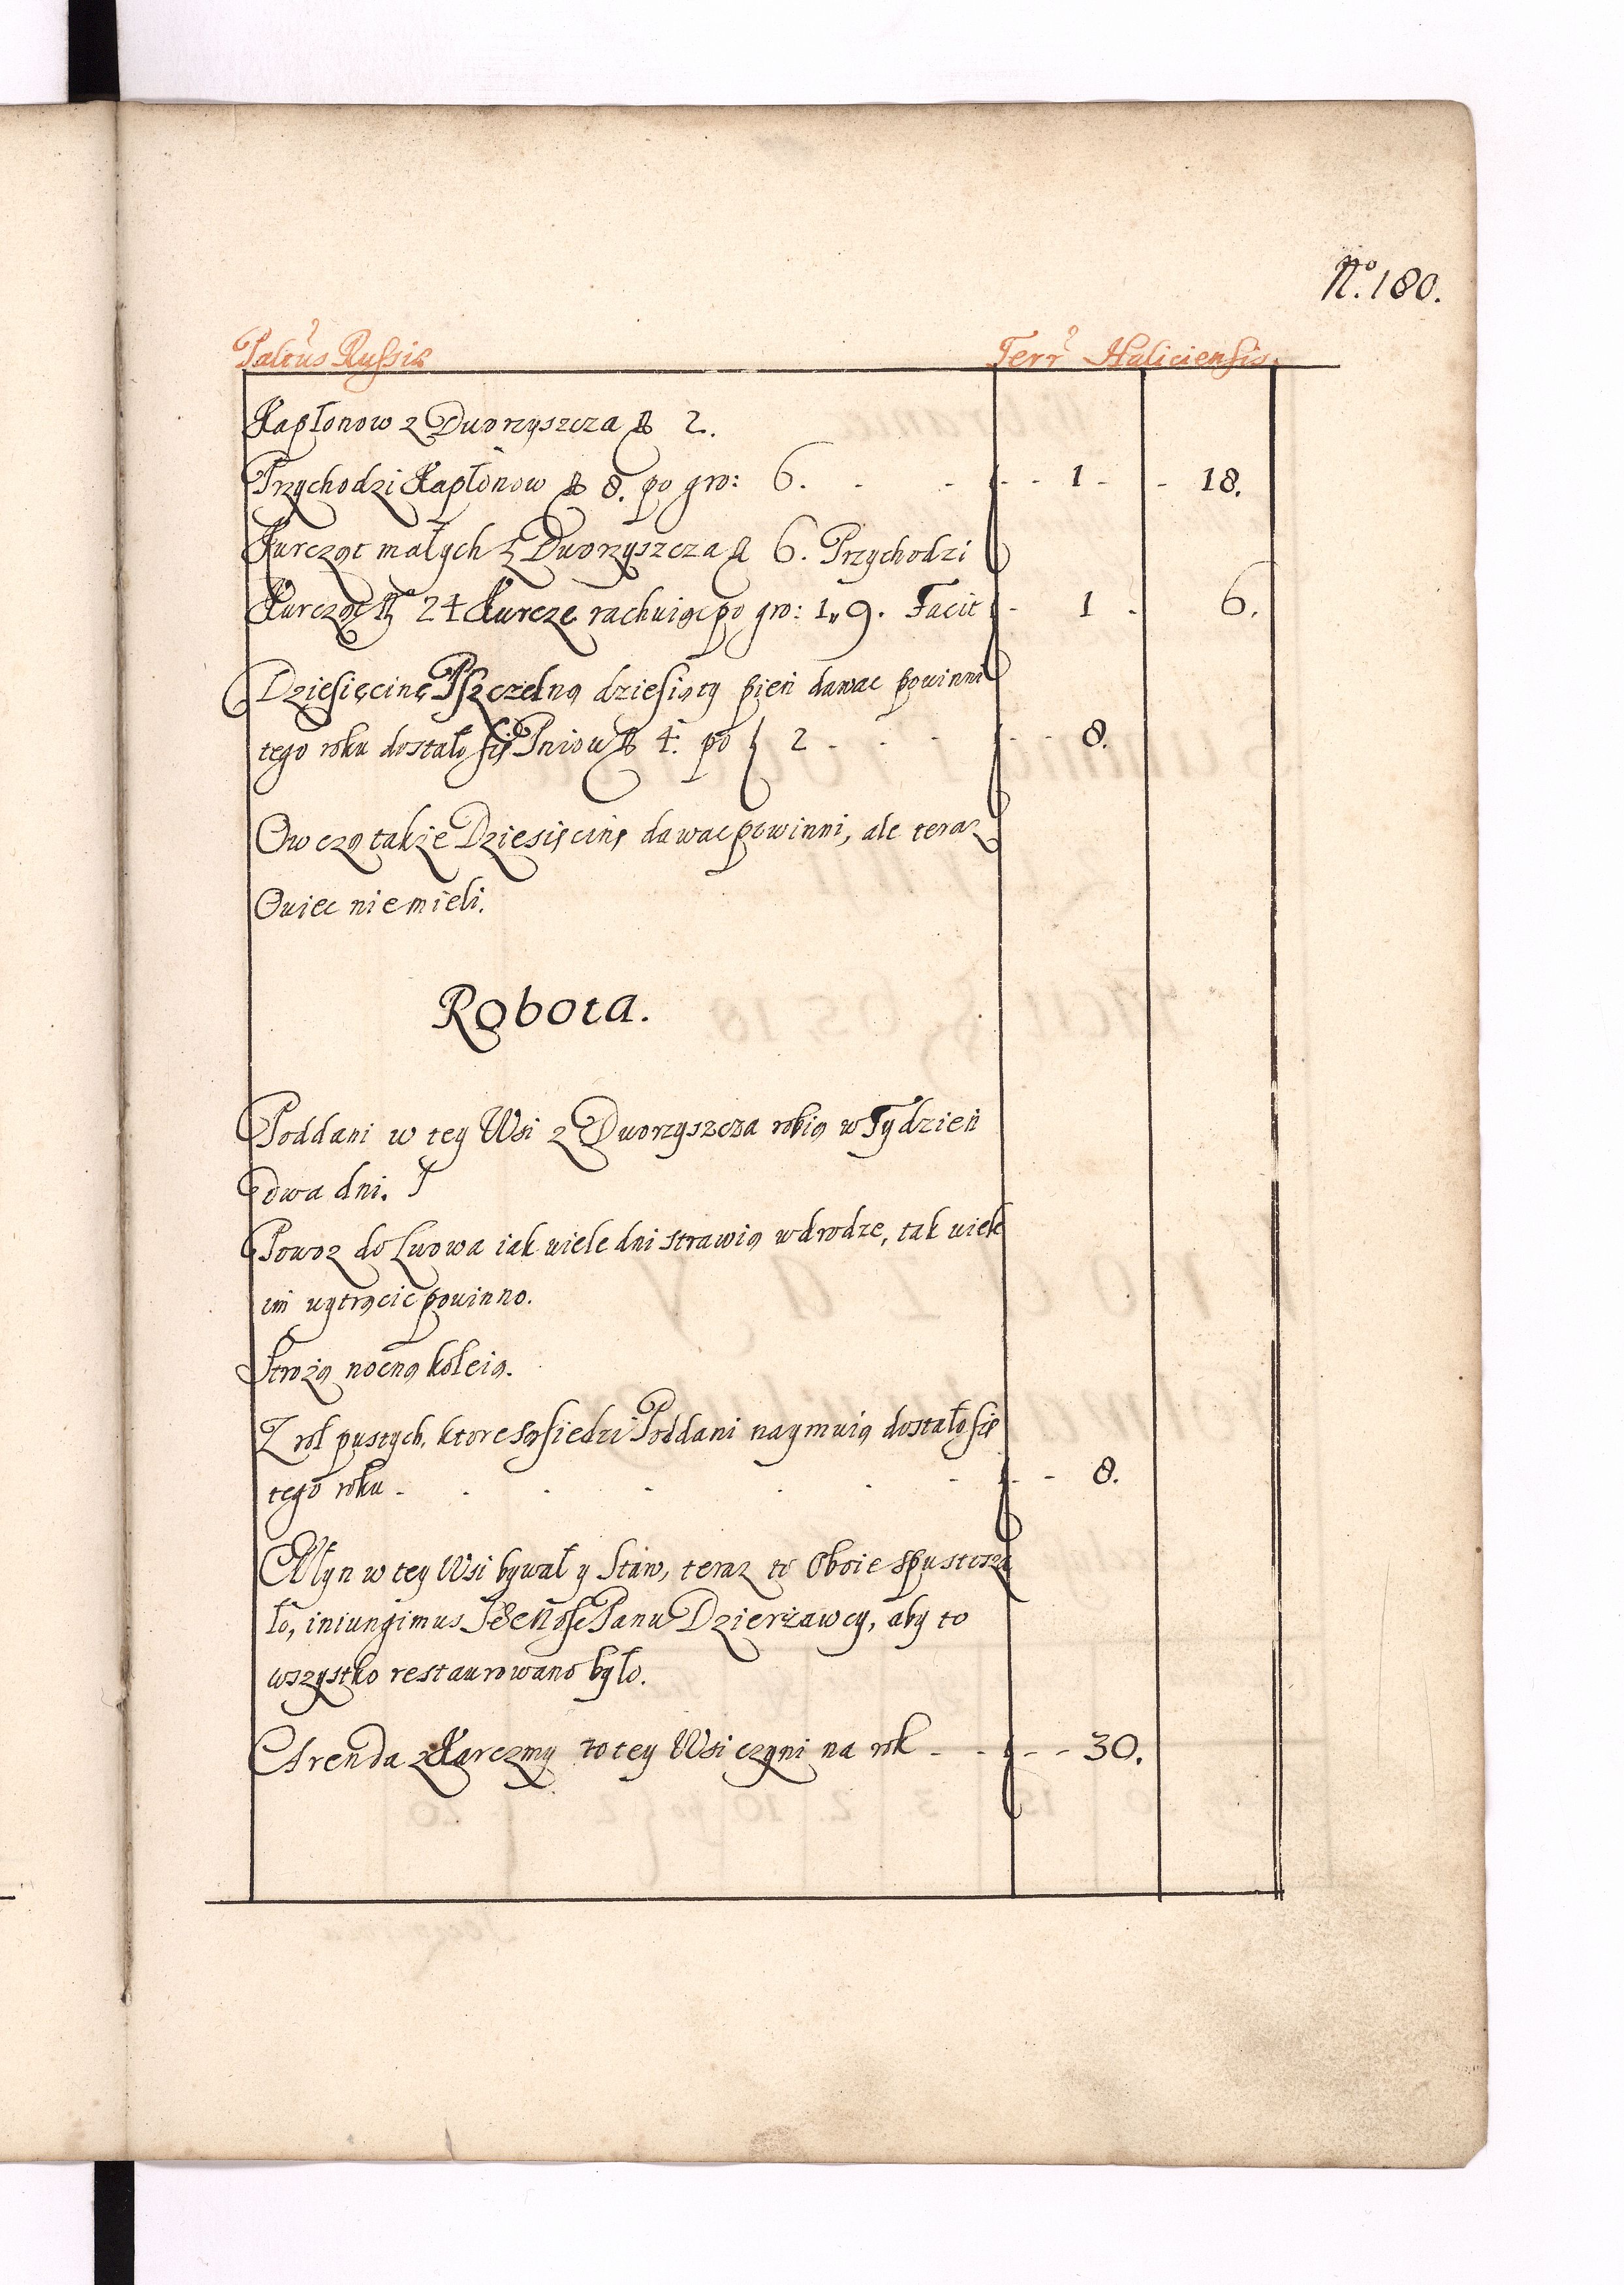 No. 180.
Paltus Russię Terr Haliciensis.
Kapłonow z Dworzyszcza No 2.
Przychodzi Kapłonow No 8. po gro: 6. . - f - - 1 - - 18.
Kurcząt małych z Dworzyszcza a 6. Przychodzi
Kurcząt No 24 Kurcze rachuiąc po gro: 1 „ 9. Facit f - 1 - 6.
Dziesięcinę Pszczelną dziesiąty pień dawac powinni
tego roku dostało się Pniow No 4. po f 2 - - - - f - - 8.
Owczą także Dziesięcinę dawac powinni, ale teraz
Owiec niemieli.
Robota.
Poddani w tey Wsi z Dworzyszcza robią w Tydzień
dwa dni.
Powoz do Lwowa iak wiele dni strawią w drodze, tak wiele
im wytrącic powinno.
Strożą nocną koleią.
Z rol pustych, ktore sąsiedzi Poddani naymuią dostało się
tego roku - . . - . . - f - - 8.
Młyn w tey Wsi bywał y Staw, teraz to oboie spustosza
ło, iniungimus Panu Dzierżawcy, aby to
wszystko restaurowano było.
Arenda z Karczmy to tey Wsi czyni na rok - - f - - 30.